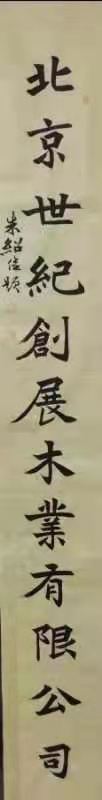 北京世紀創展木業有限公司
朱紹德題